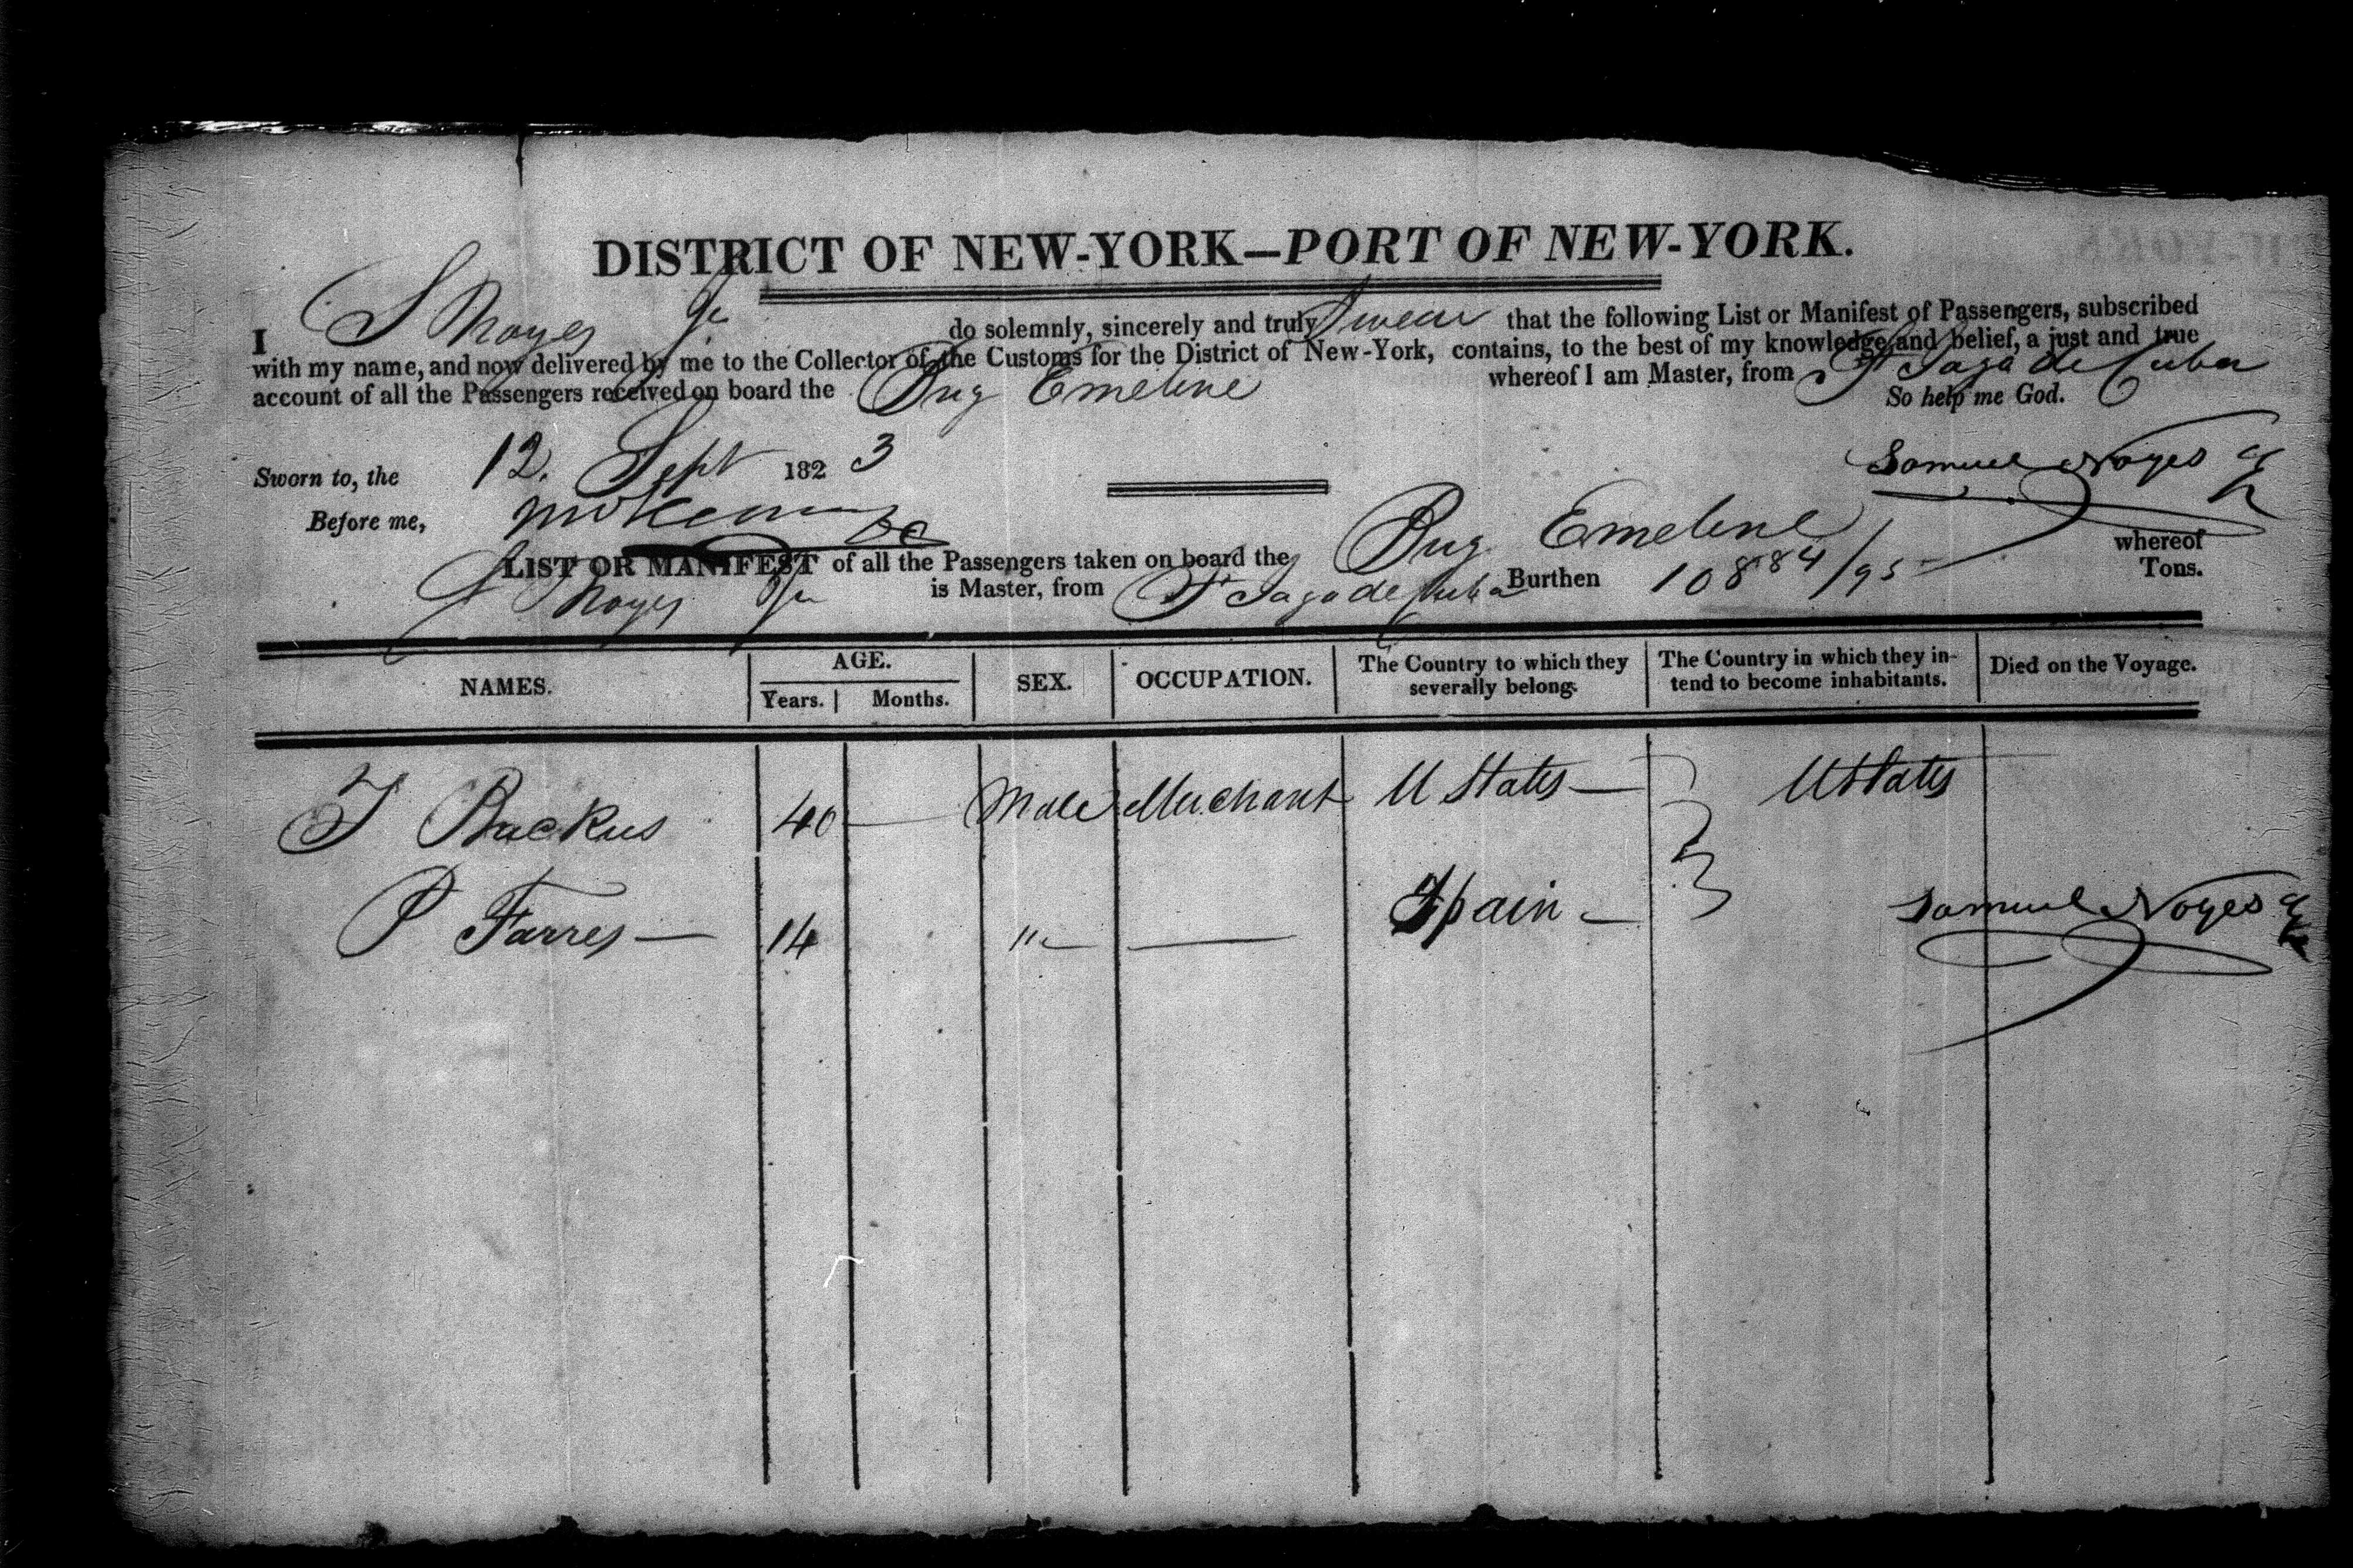 DISTRICT OF NEW-YORK—PORT OF NEW-YORK.
I S Noyes Jr do solemnly, sincerely and truly Swear that the following List or Manifest of Passengers, subscribed
with my name, and now delivered by me to the Collector of the Customs for the District of New-York, contains, to the best of my knowledge and belief, a just and true
account of all the Passengers received on board the Brig Emeline whereof I am Master, from St Jago de Cuba
So help me God.
Sworn to, the 12. Sept 1823
Samuel Noyes Jr
Before me,
LIST OR MANIFEST of all the Passengers taken on board the Brig Emeline whereof
S Noyes Jr is Master, from St Jago de Cuba Burthen 108 84/95 Tons.
NAMES. AGE. SEX. OCCUPATION. The Country to which they severally belong. The Country in which they intend to become inhabitants. Died on the Voyage.
Years. Months.
T Backus 40 — Male Merchant U States — U States
P Farres — 14 " — Spain —
Samuel Noyes Jr